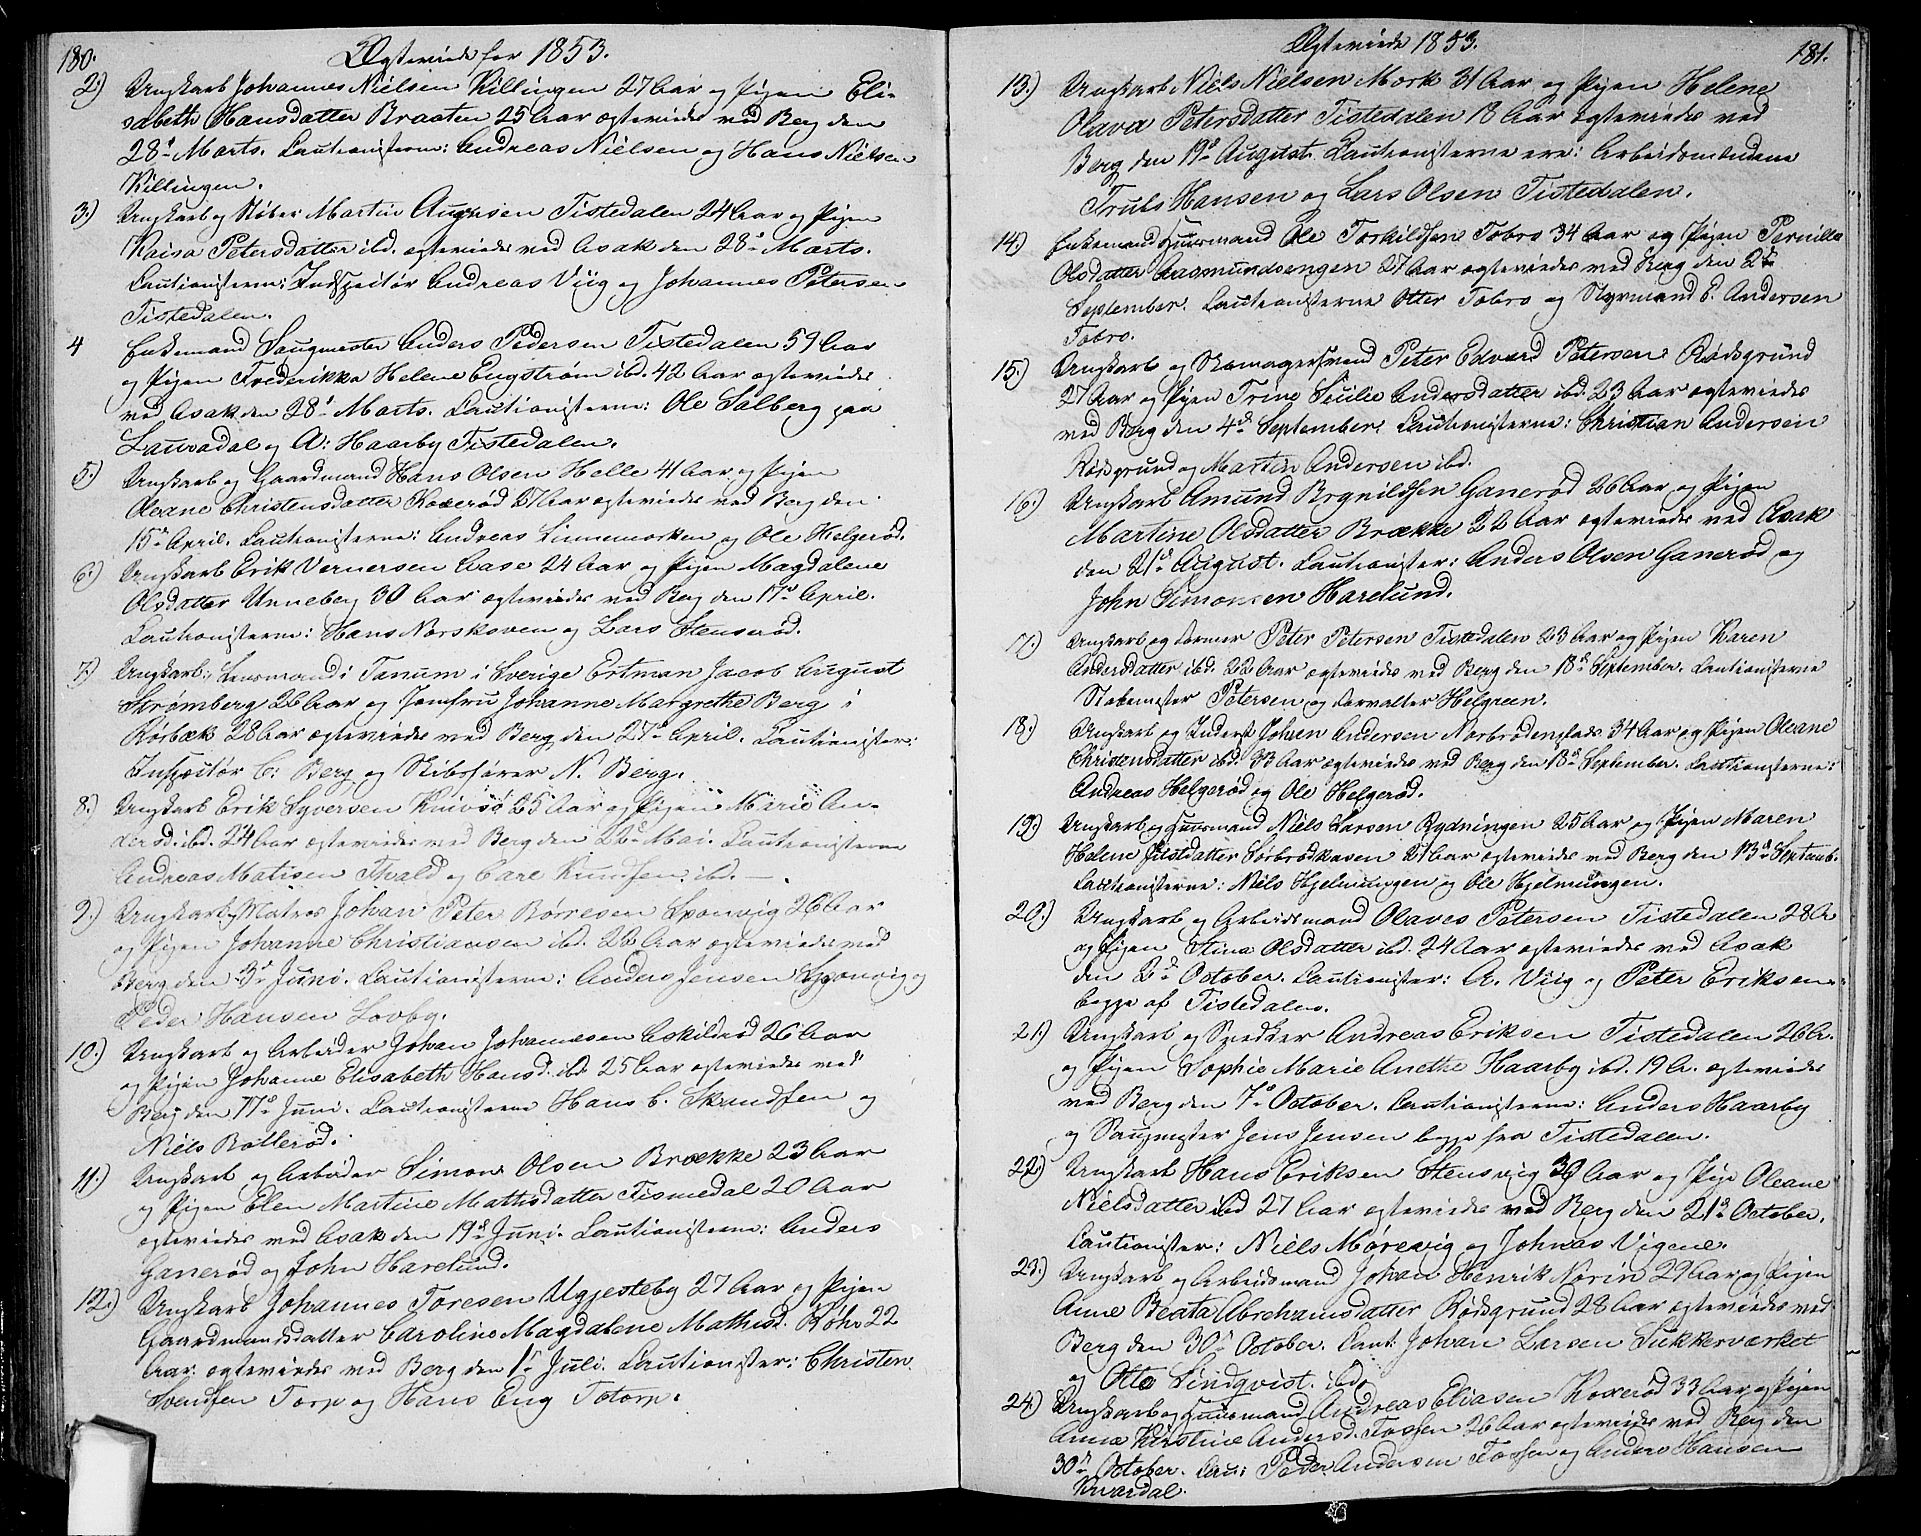 180.
Ægteviede for 1853.
2.) Ungkarl Johannes Nielsen Killingen 27 Aar og Pigen Eli-
sabeth Hansdatter Braaten 25 Aar ægteviede ved Berg den
28d Marts. Cautionisterne: Andreas Nielsen og Hans Nielsen
Killingen.
3.) Ungkarl og Støber Martin Augensen Tistedalen 24 Aar og Pigen
Kaisa Petersdatter ibd. ægteviede ved Asak den 28d Marts.
Cautionisterne: Indspectør Andreas Viig og Johannes Petersen
Tistedalen.
4 Enkemand Saugmester Anders Pedersen Tistedalen 59 Aar
og Pigen Frederikka Helene Engstrøm ibd. 42 Aar ægteviede
ved Asak den 28d Marts. Cautionisterne: Ole Solberg paa
Lauvadal og A: Haarby Tistedalen.
5.) Ungkarl og Gaardmand Hans Olsen Helle 41 Aar og Pigen
Oleane Christensdatter Koxerød 27 Aar ægteviede ved Berg den
15d April. Cautionisterne: Andreas Linnemorken og Ole Helgerød.
6.) Ungkarl Erik Vernersen Aase 24 Aar og Pigen Magdalene
Olsdatter Unneberg 30 Aar ægteviede ved Berg den 17d April.
Cautionisterne: Hans Norskoven og Lars Stenserød.
7.) Ungkarl, Lensmand i Tanum i Sverige Ertman Jacob August
Strømberg 26 Aar og Jomfru Johanne Margrethe Berg i
Rørbæk 28 Aar ægteviede ved Berg den 27d April. Cautionister:
Inspectør C: Berg og Skibsfører N. Berg.
8.) Ungkarl Erik Syversen Knivsø 25 Aar og Pigen Marie An-
derød. ibd. 24 Aar ægteviede ved Berg den 22d Mai. Cautionisterne
Andreas Matisen Fwald og Carl Knudsen ibd. —
9.) Ungkarl, Matros Johan Peter Børresen Sponvig 26 Aar
og Pigen Johanne Christiansen ibd. 26 Aar ægteviede ved
Berg den 3d Juni. Cautionisterne: Anders Jensen Sponvig og
Peder Hansen Lovby.
10.) Ungkarl og Arbeider Johan Johannesen Askilsrød 26 Aar
og Pigen Johanne Elisabeth Hansd. ibd. 25 Aar ægteviede ved
Berg den 17d Juni. Cautionisterne Hans C. Strandsen og
Niels Bøllerød.
11.) Ungkarl og Arbeider Simon Olsen Brække 23 Aar
og Pigen Elen Martine Mathisdatter Tismedal 20 Aar
ægteviede ved Asak den 19d Juni. Cautionisterne: Anders
Ganerød og John Harelund.
12.) Ungkarl Johannes Toresen Uggesteby 27 Aar og Pigen
Gaardmandsdatter Caroline Magdalene Mathisd. Røhr 22
Aar ægteviede ved Berg den 1d Juli. Cautionister: Christen
Svendsen Torp og Hans Eng Totorp.
181.
Ægteviede 1853.
13.) Ungkarl Niels Nielsen Mork 31 Aar og Pigen Helene
Olava Petersdatter Tistedalen 18 Aar ægteviede ved
Berg den 19d August. Cautionisterne ere: Arbeidsmændene
Truls Hansen og Lars Olsen Tistedalen.
14.) Enkemand Huusmand Ole Torkildsen Tobro 34 Aar og Pigen Pernille
Olsdatter Aasmundsengen 27 Aar ægteviede ved Berg den 2d
September. Cautionisterne Otter Tobro og Styrmand E. Andersen
Tobro.
15.) Ungkarl og Skomagersvend Peter Edvard Petersen Rødsgrund
27 Aar og Pigen Trine Sicilie Andersdatter ibd. 23 Aar ægteviede
ved Berg den 4d September. Cautionisterne: Christian Andersen
Rødsgrund og Martin Andersen ibd.
16.) Ungkarl Amund Brynildsen Ganerød 26 Aar og Pigen
Martine Olsdatter Brække 22 Aar ægteviede ved Asak
den 21d August. Cautionister: Anders Olsen Ganerød og
John Simonsen Harelund.
17.) Ungkarl og Former Peter Petersen Tistedalen 23 Aar og Pigen Karen
Andersdatter ibd. 22 Aar ægteviede ved Berg den 18d September. Cautionisterne
Støbemester Petersen og Forvalter Helgreen.
18.) Ungkarl og Inderst Johan Andersen Norbrødenplads 34 Aar og Pigen Oleane
Christensdatter ibd. 33 Aar ægteviede ved Berg den 18d September. Cautionisterne:
Andreas Helgerød og Ole Helgerød.
19.) Ungkarl og Huusmand Niels Larsen Rydningen 25 Aar og Pigen Maren
Helene Juls­datter Sørbrødkasen 21 Aar ægteviede ved Berg den 13d Septemb.
Cautionisterne: Niels Hjelmungen og Ole Hjelmungen.
20.) Ungkarl og Arbeidsmand Olaves Petersen Tistedalen 28 A
og Pigen Stina Olsdatter ibd. 24 Aar ægteviede ved Asak
den 2d October. Cautionister: A. Viig og Peter Eriksen
begge af Tistedalen.
21.) Ungkarl og Snedker Andreas Eriksen Tistedalen 26 A.
og Pigen Sophie Marie Anethe Haarby ibd. 19 A. ægteviede
ved Berg den 7d October. Cautionisterne: Anders Haarby
og Saugmester Jens Jensen begge fra Tistedalen.
22.) Ungkarl Hans Eriksen Stensvig 30 Aar og Pige Oleane
Nielsdatter ibd 27 Aar ægteviede ved Berg den 21d October.
Cautionister: Niels Mørevig og Johnas Vigene.
23.) Ungkarl og Arbeidsmand Johan Henrik Norin 29 Aar og Pigen
Anne Beata Abrehamsdatter Rødsgrund 28 Aar ægteviede ved
Berg den 30d October. Caut: Johan Larsen Sukkerværket
og Otto Lindqvist. ibd.
24.) Ungkarl og Huusmand Andreas Eliasen Koxerød 33 Aar og Pigen
Anne Kirstine Andersd. Fossen 26 Aar ægteviede ved Berg den
30d October. Cau: Peder Andersen Fossen og Anders Hansen
Kvardal.